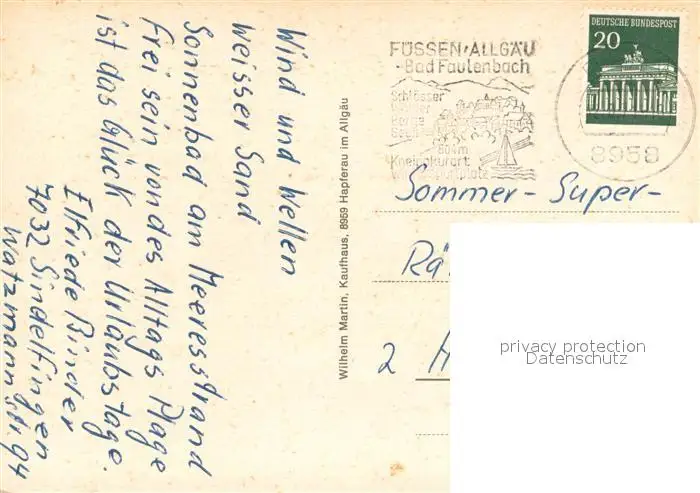 Wind und Wellen
weisser Sand
Sonnenbad am Meeresstrand
frei sein von des Alltags Plage
ist das Glück der Urlaubstage.
Elfriede Binder
7032 Sindelfingen
Watzmannstr. 94
Wilhelm Martin, Kaufhaus, 8959 Hapferau im Allgäu
FÜSSEN/ALLGÄU
-Bad Faulenbach
Schlösser
Berge
Seen
804m
Kneippkurort
8958
DEUTSCHE BUNDESPOST
20
Sommer-Super-
Rä
2 H
privacy protection
Datenschutz